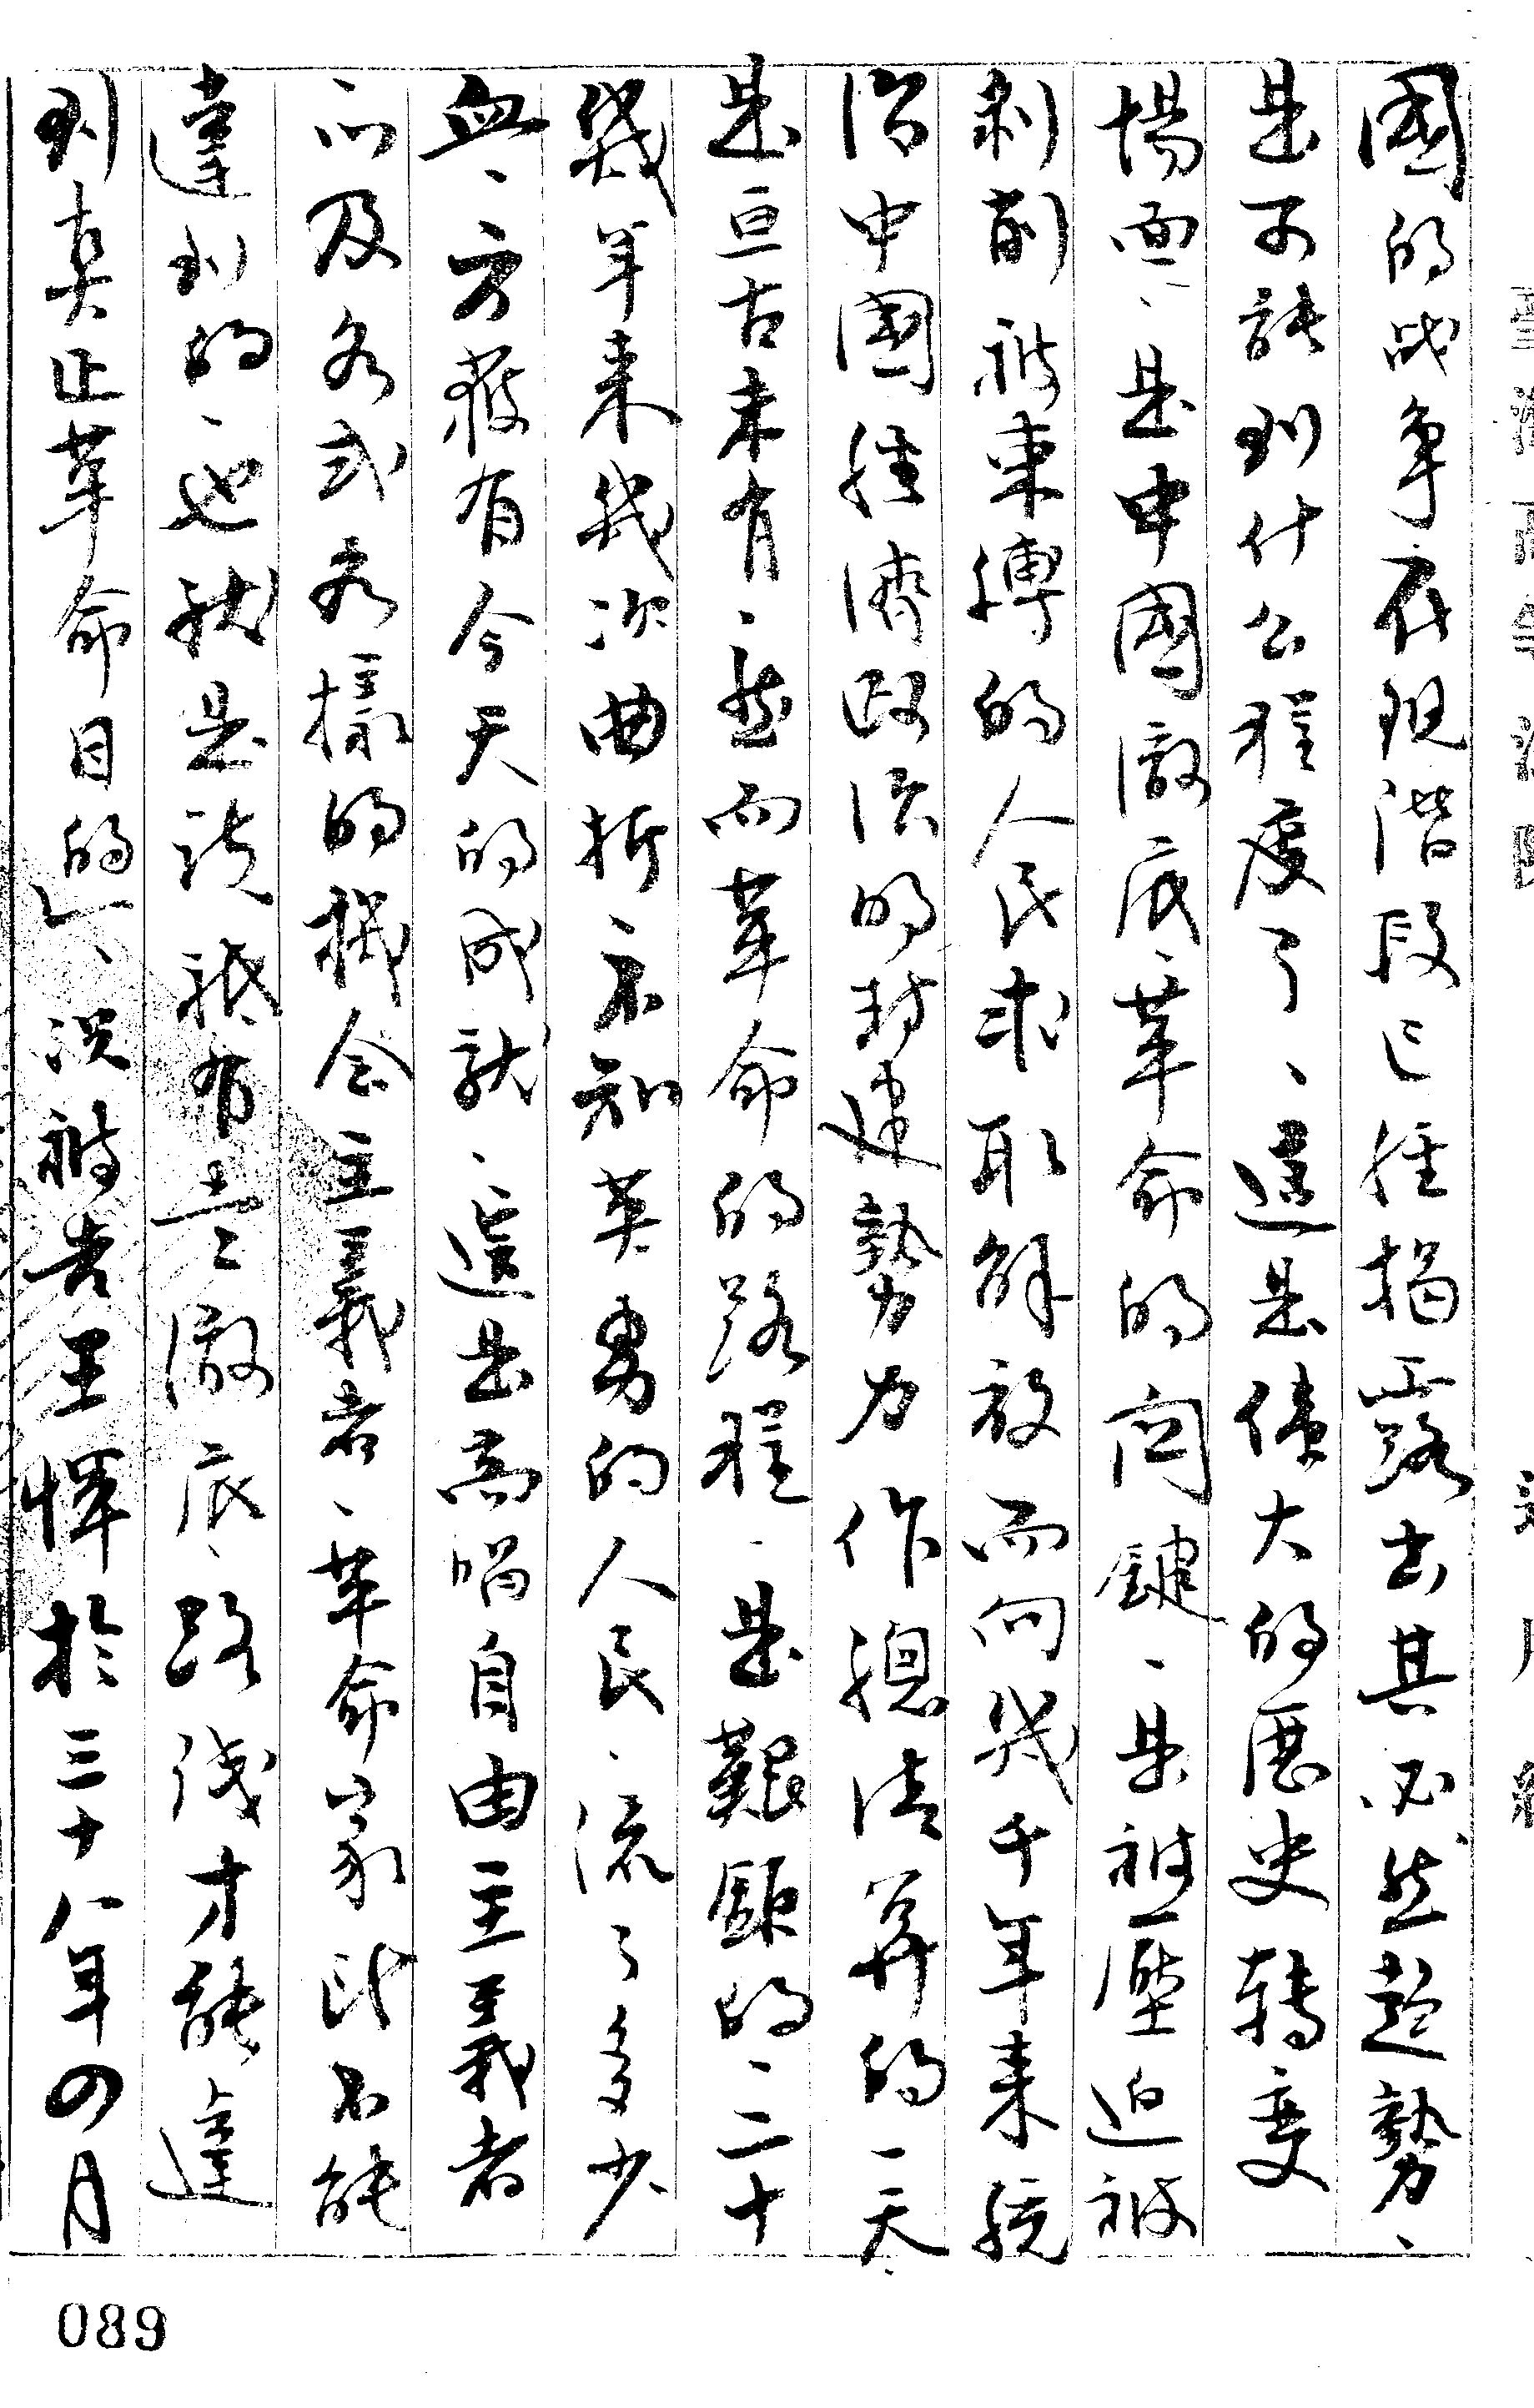 國的战争在現階段已經揭露出其必然趨勢、
是可能到什么程度了、這是偉大的歷史轉变
場面、是中國澈底革命的関鍵、是被壓迫被
剥削被束縛的人民求取解放而向幾千年来統
治中國経濟政治的封建勢力作總清算的一天
是亘古未有、然而革命的路程、是艱鉅的二十
幾年来幾次曲折不知英勇的人民、流了多少
血、方獲有今天的成就、這是高唱自由主義者
以及各式各樣的機会主義者、革命家所不能
達到的、也就是說祇有走澈底路线才能達
到真正革命目的」、況被告王惲於三十八年四月
089